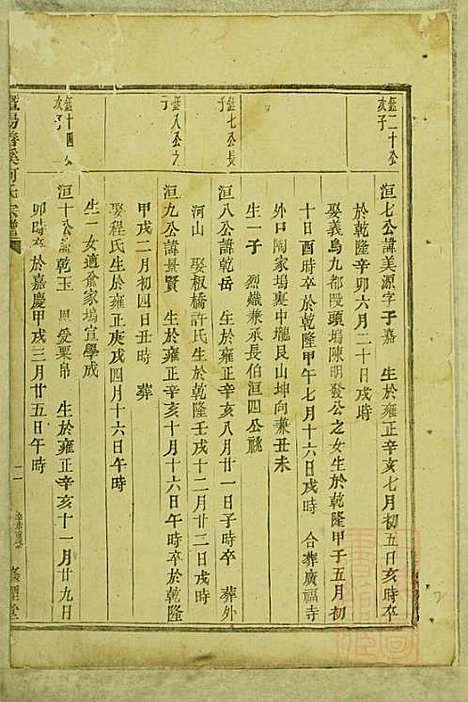 鈺二十公
次子
洹七公諱美源字子嘉　生於雍正辛亥七月初五日亥時卒
於乾隆辛卯六月二十日戌時
娶義烏九都饅頭塢陳明發公之女生於乾隆甲子五月初
十日酉時卒於乾隆甲午七月十六日戌時　合葬廣福寺
外口陶家塢裏中壠艮山坤向兼丑未
生一子　烈熾兼承長伯洹四公祧
鈺七公長
子
洹八公諱乾岳　生於雍正辛亥八月廿一日子時卒　葬外
河山　娶板橋許氏生於乾隆壬戌十二月廿三日戌時
鈺八公之
子
洹九公諱景賢　生於雍正辛亥十月十六日午時卒於乾隆
甲戌二月初四日丑時　葬
娶程氏生於雍正庚戌四月十六日午時
生一女適俞家塢宣學成
鈺十四公
子
洹十公諱乾玉　恩受粟帛　生於雍正辛亥十一月廿九日
卯時卒於嘉慶甲戌三月廿五日午時
暨陽 溪何氏宗譜